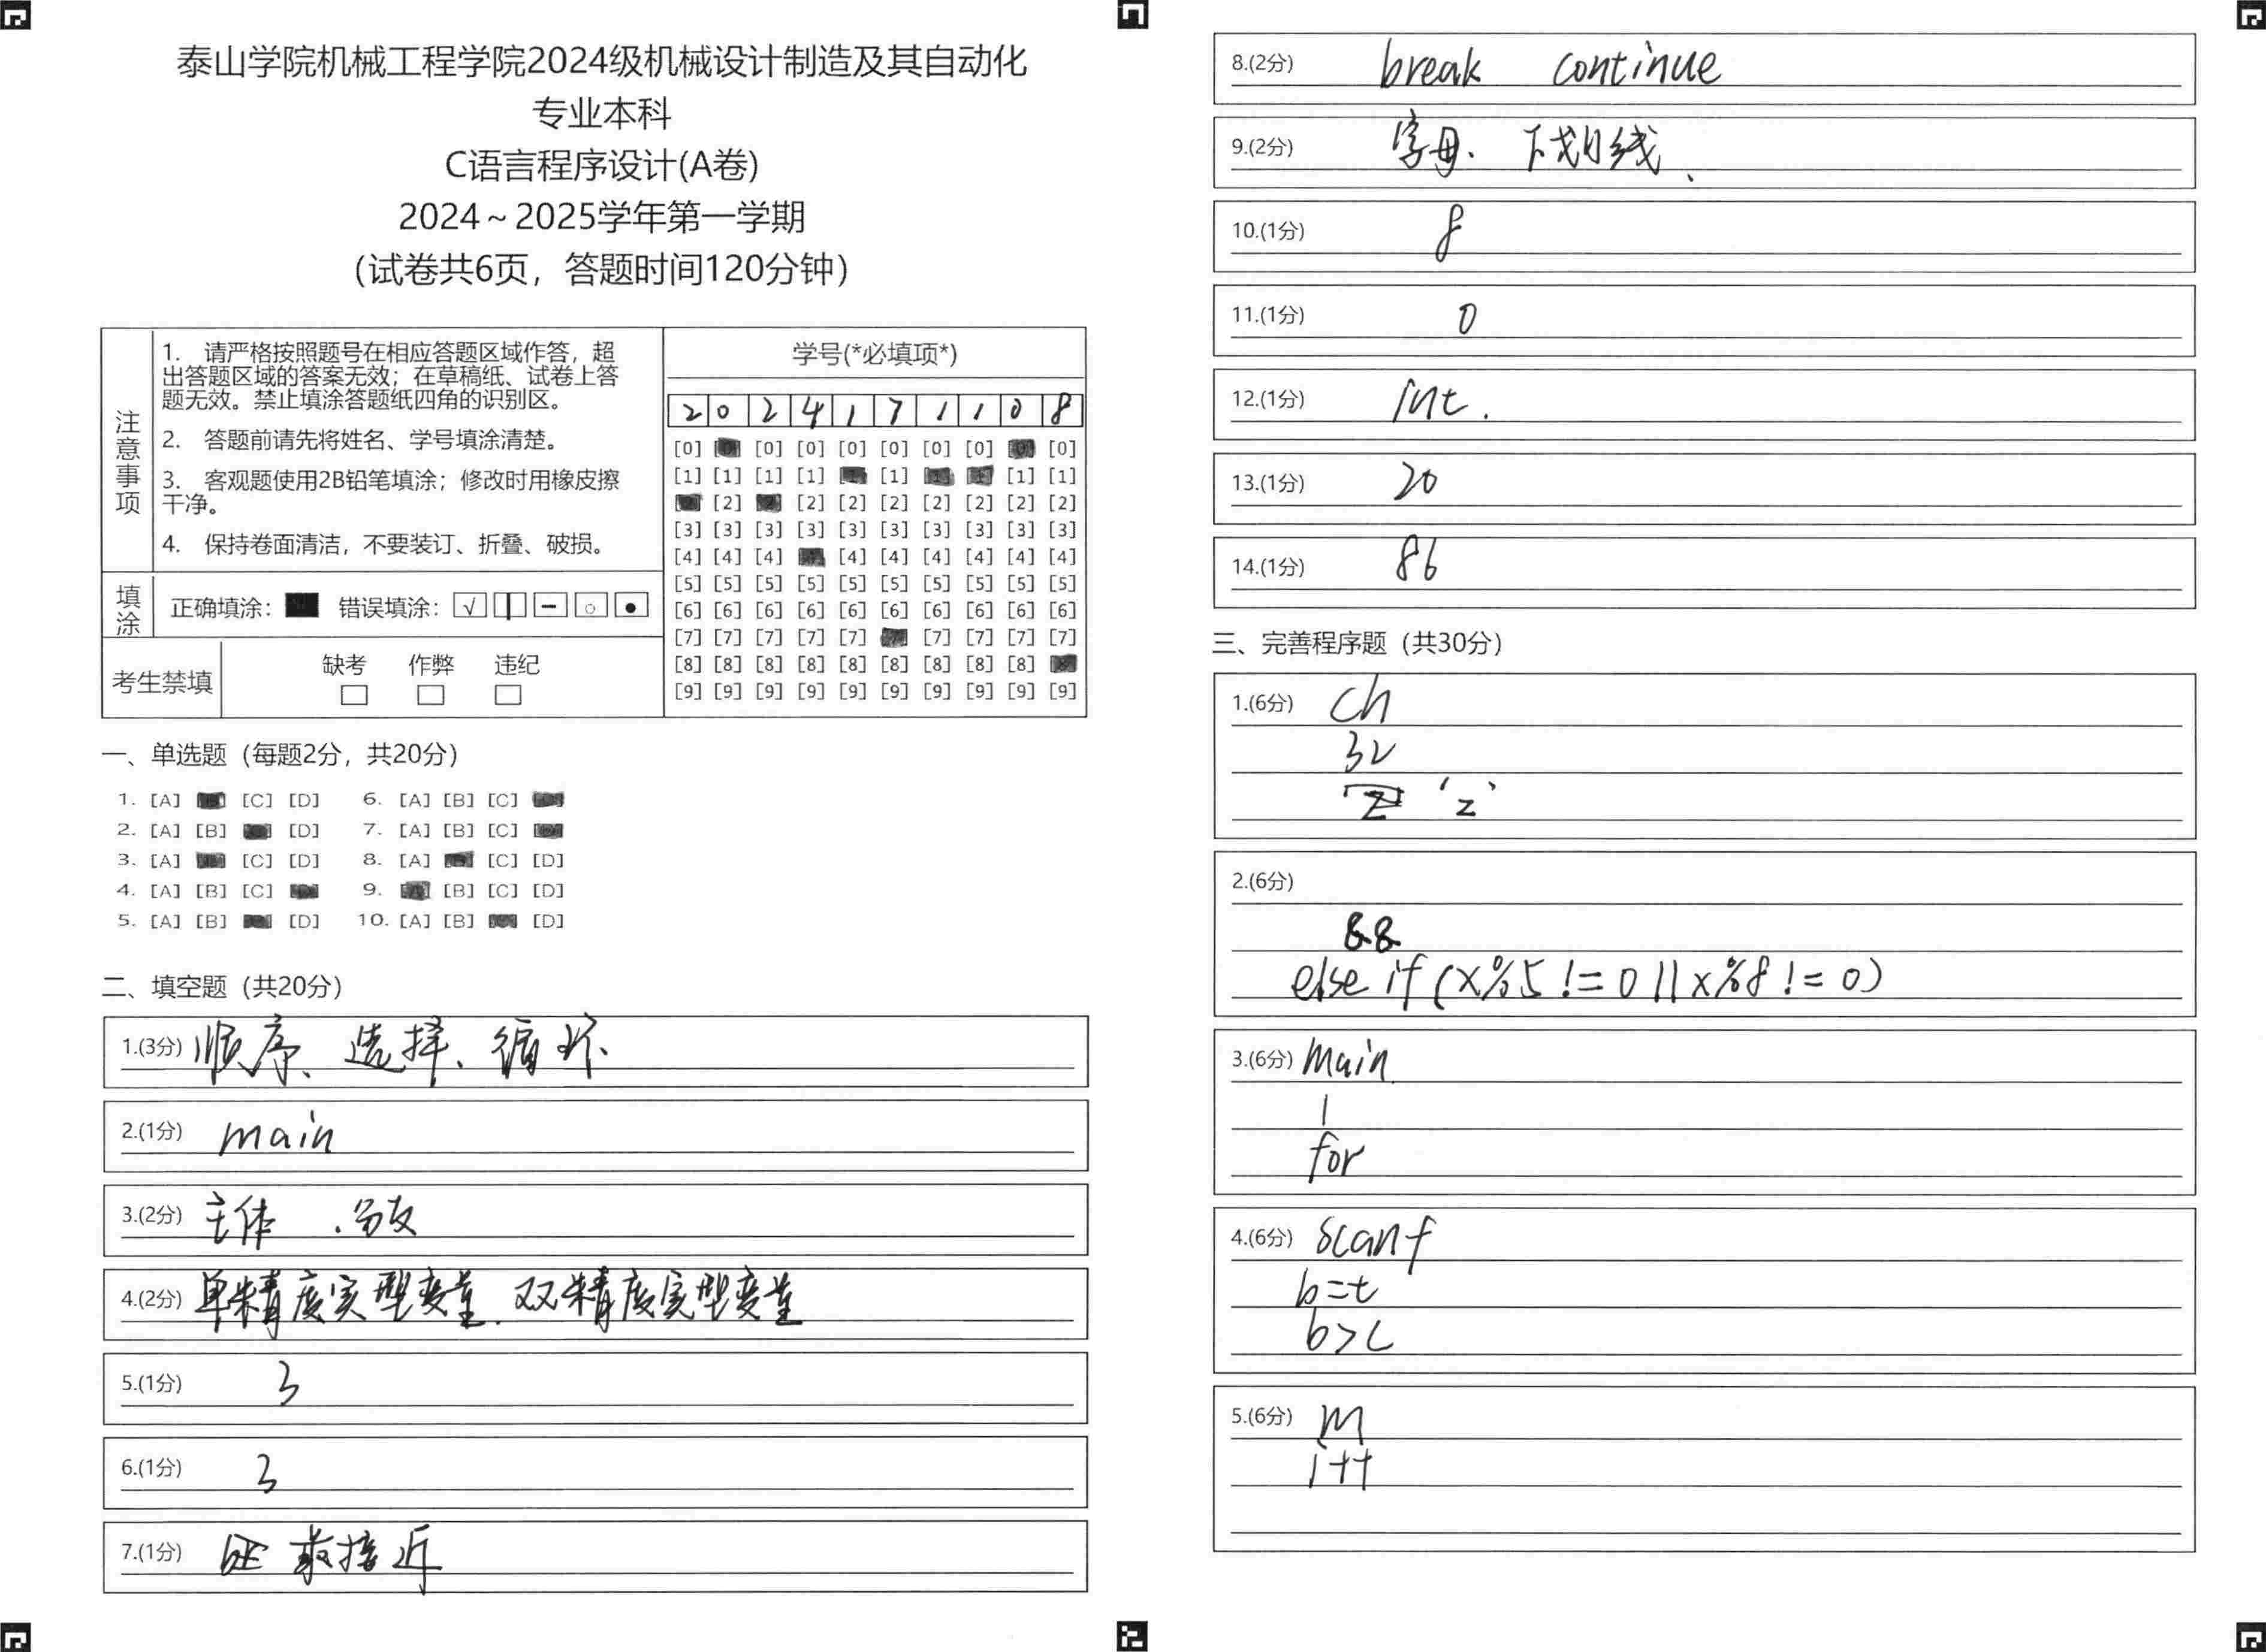 泰山学院机械工程学院2024级机械设计制造及其自动化
专业本科
C语言程序设计(A卷)
2024～2025学年第一学期
(试卷共6页，答题时间120分钟)
注意事项
1. 请严格按照题号在相应答题区域作答，超
出答题区域的答案无效；在草稿纸、试卷上答
题无效。禁止填涂答题纸四角的识别区。
2. 答题前请先将姓名、学号填涂清楚。
3. 客观题使用2B铅笔填涂；修改时用橡皮擦
干净。
4. 保持卷面清洁，不要装订、折叠、破损。
填涂
正确填涂： 错误填涂：
考生禁填
缺考 作弊 违纪
学号(*必填项*)
2 0 2 4 1 7 1 1 0 8
[0] [0] [0] [0] [0] [0] [0] [0]
[1] [1] [1] [1] [1] [1] [1]
[2] [2] [2] [2] [2] [2] [2] [2]
[3] [3] [3] [3] [3] [3] [3] [3] [3] [3]
[4] [4] [4] [4] [4] [4] [4] [4] [4]
[5] [5] [5] [5] [5] [5] [5] [5] [5] [5]
[6] [6] [6] [6] [6] [6] [6] [6] [6] [6]
[7] [7] [7] [7] [7] [7] [7] [7] [7]
[8] [8] [8] [8] [8] [8] [8] [8] [8]
[9] [9] [9] [9] [9] [9] [9] [9] [9] [9]
一、单选题（每题2分，共20分）
1. [A] [C] [D] 6. [A] [B] [C]
2. [A] [B] [D] 7. [A] [B] [C]
3. [A] [C] [D] 8. [A] [C] [D]
4. [A] [B] [C] 9. [B] [C] [D]
5. [A] [B] [D] 10. [A] [B] [D]
二、填空题（共20分）
1.(3分) 顺序、选择、循环
2.(1分) main
3.(2分) 主体 .分支
4.(2分) 单精度实型变量. 双精度实型变量
5.(1分) 3
6.(1分) 3
7.(1分) 最接近
8.(2分) break continue
9.(2分) 字母、下划线、
10.(1分) 8
11.(1分) 0
12.(1分) int.
13.(1分) 20
14.(1分) 86
三、完善程序题（共30分）
1.(6分) ch
32
'z'
2.(6分)
&&
else if (x%5 != 0 || x%8 != 0)
3.(6分) main
1
for
4.(6分) scanf
b=t
b>c
5.(6分) m
i++